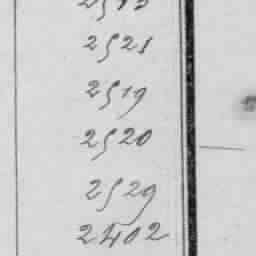 2521
2519
2520
2529
2402